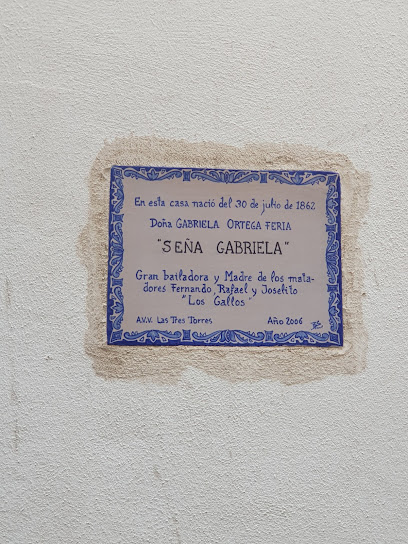 En esta casa nació del 30 de julio de 1862
Doña GABRIELA ORTEGA FERIA
"SEÑA GABRIELA"
Gran bailadora y Madre de los mata-
dores Fernando, Rafael y Joselito
"Los Gallos"
A.V.V. Las Tres Torres Año 2006